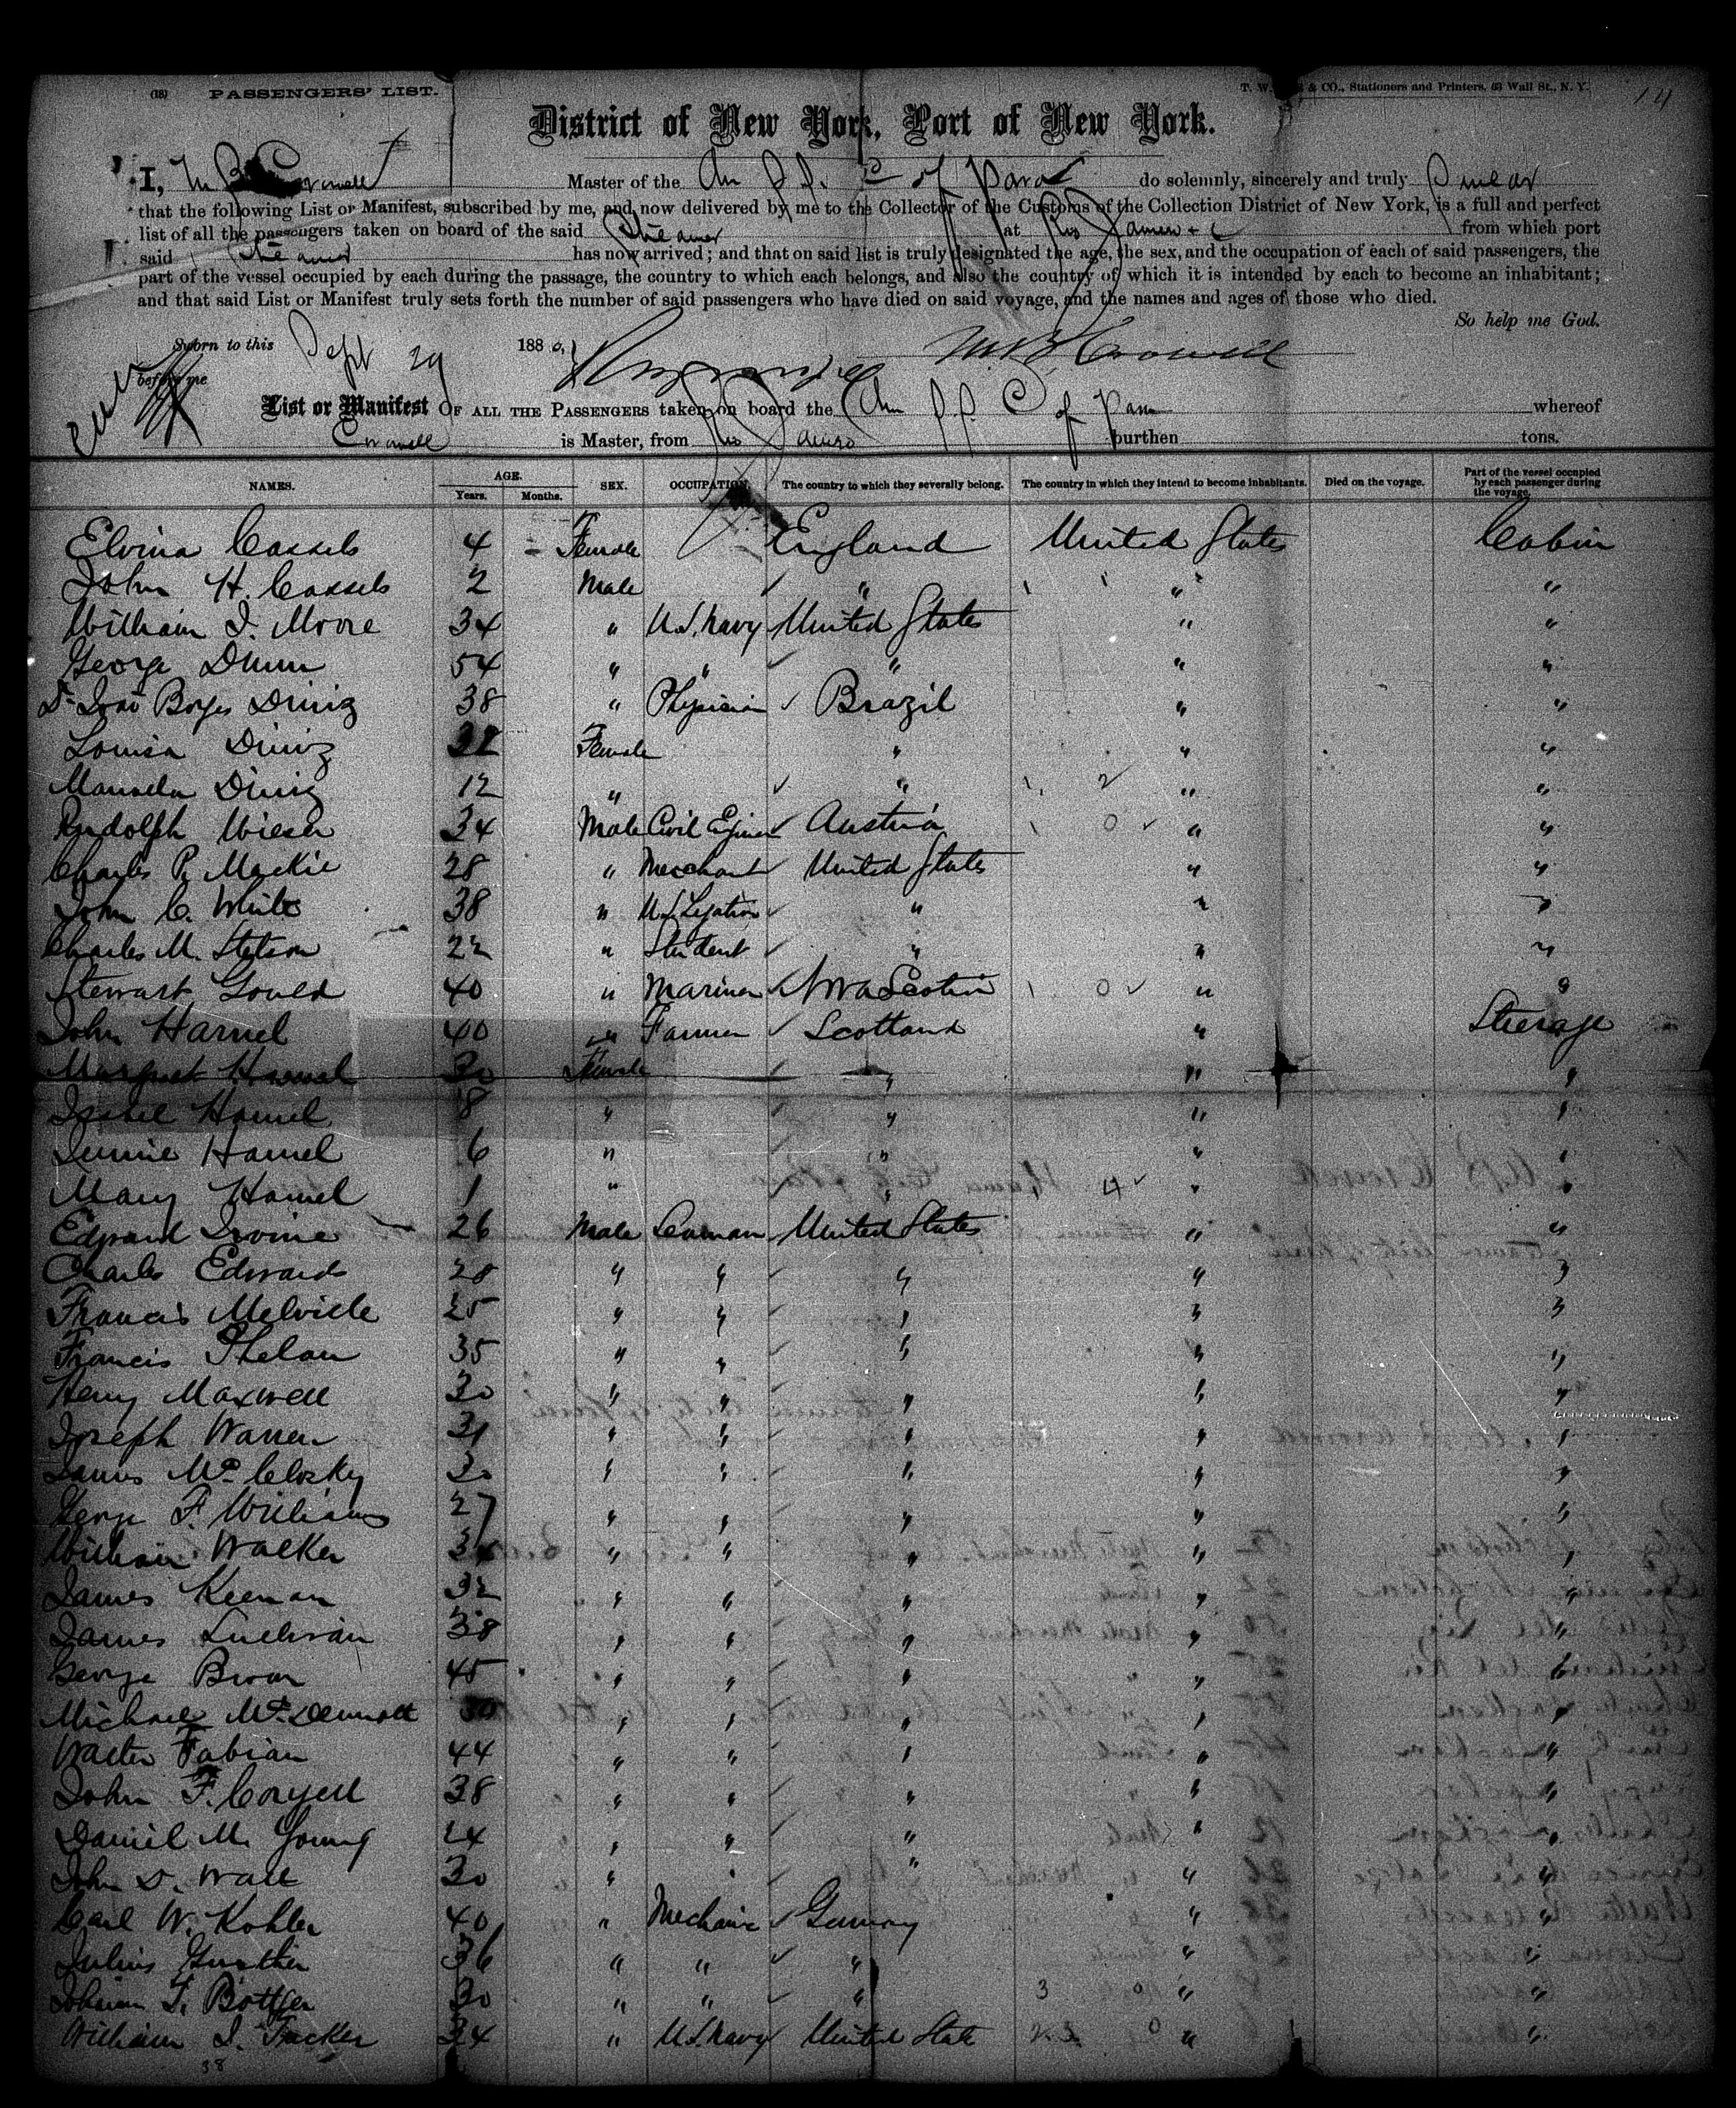 (18) PASSENGERS' LIST.
T. W. & CO., Stationers and Printers, 63 Wall St., N. Y.
14
District of New York, Port of New York.
I, M B Crowell Master of the Am S.S. C of Para do solemnly, sincerely and truly Swear
that the following List or Manifest, subscribed by me, and now delivered by me to the Collector of the Customs of the Collection District of New York, is a full and perfect
list of all the passengers taken on board of the said Steamer at Rio Janeiro from which port
said Steamer has now arrived; and that on said list is truly designated the age, the sex, and the occupation of each of said passengers, the
part of the vessel occupied by each during the passage, the country to which each belongs, and also the country of which it is intended by each to become an inhabitant;
and that said List or Manifest truly sets forth the number of said passengers who have died on said voyage, and the names and ages of those who died.
So help me God.
Sworn to this Sept 29 1880,
M B Crowell
before me
List or Manifest OF ALL THE PASSENGERS taken on board the Am S.S. C of Para whereof
Crowell is Master, from Rio Janeiro burthen tons.
NAMES. AGE. Years. Months. SEX. OCCUPATION. The country to which they severally belong. The country in which they intend to become inhabitants. Died on the voyage. Part of the vessel occupied by each passenger during the voyage.
Elvina Cassels 4 Female England United States Cabin
John H. Cassels 2 Male " " "
William I. Moore 34 " U.S. Navy United States " "
George Dunn 54 " " " " "
Dr João Borges Diniz 38 " Physician Brazil " "
Louisa Diniz Female " " "
Manuela Diniz 12 " " 2 " "
Rudolph Wieser 34 Male Civil Eginer Austria 0 " "
Charles P. Mackie 28 " Merchant United States " "
John C. White 38 " U.S. Legation " " "
Charles M. Stetson 22 " Student " " "
Stewart Gould 40 " Mariner Nova Scotia 0 " "
John Hamel 40 " Farmer Scotland " Steerage
Margaret Hamel 30 Female " " "
Isabel Hamel 8 " " " "
Jennie Hamel 6 " " " "
Mary Hamel 1 " " 4 " "
Edward Irvine 26 Male Seaman United States " "
Charles Edwards 28 " " " " "
Francis Melville 25 " " " " "
Francis Phelan 35 " " " " "
Henry Maxwell 30 " " " " "
Joseph Warren 31 " " " " "
James McClosky 30 " " " " "
George F. Williams 27 " " " " "
William Walker 34 " " " " "
James Keenan 32 " " " " "
James Sullivan 38 " " " " "
George Brown 45 " " " " "
Michael McDermott 30 " " " " "
Walter Fabian 44 " " " " "
John F. Coryell 38 " " " " "
Daniel M. Young 24 " " " " "
John D. Wall 30 " " " " "
Carl W. Kohler 40 " Mechanic Germany " "
Julius Gunther 36 " " " " "
Johann T. Bottger 30 " " " 3 0 " "
William I. Tucker 34 " U.S. Navy United State 0 " "
38